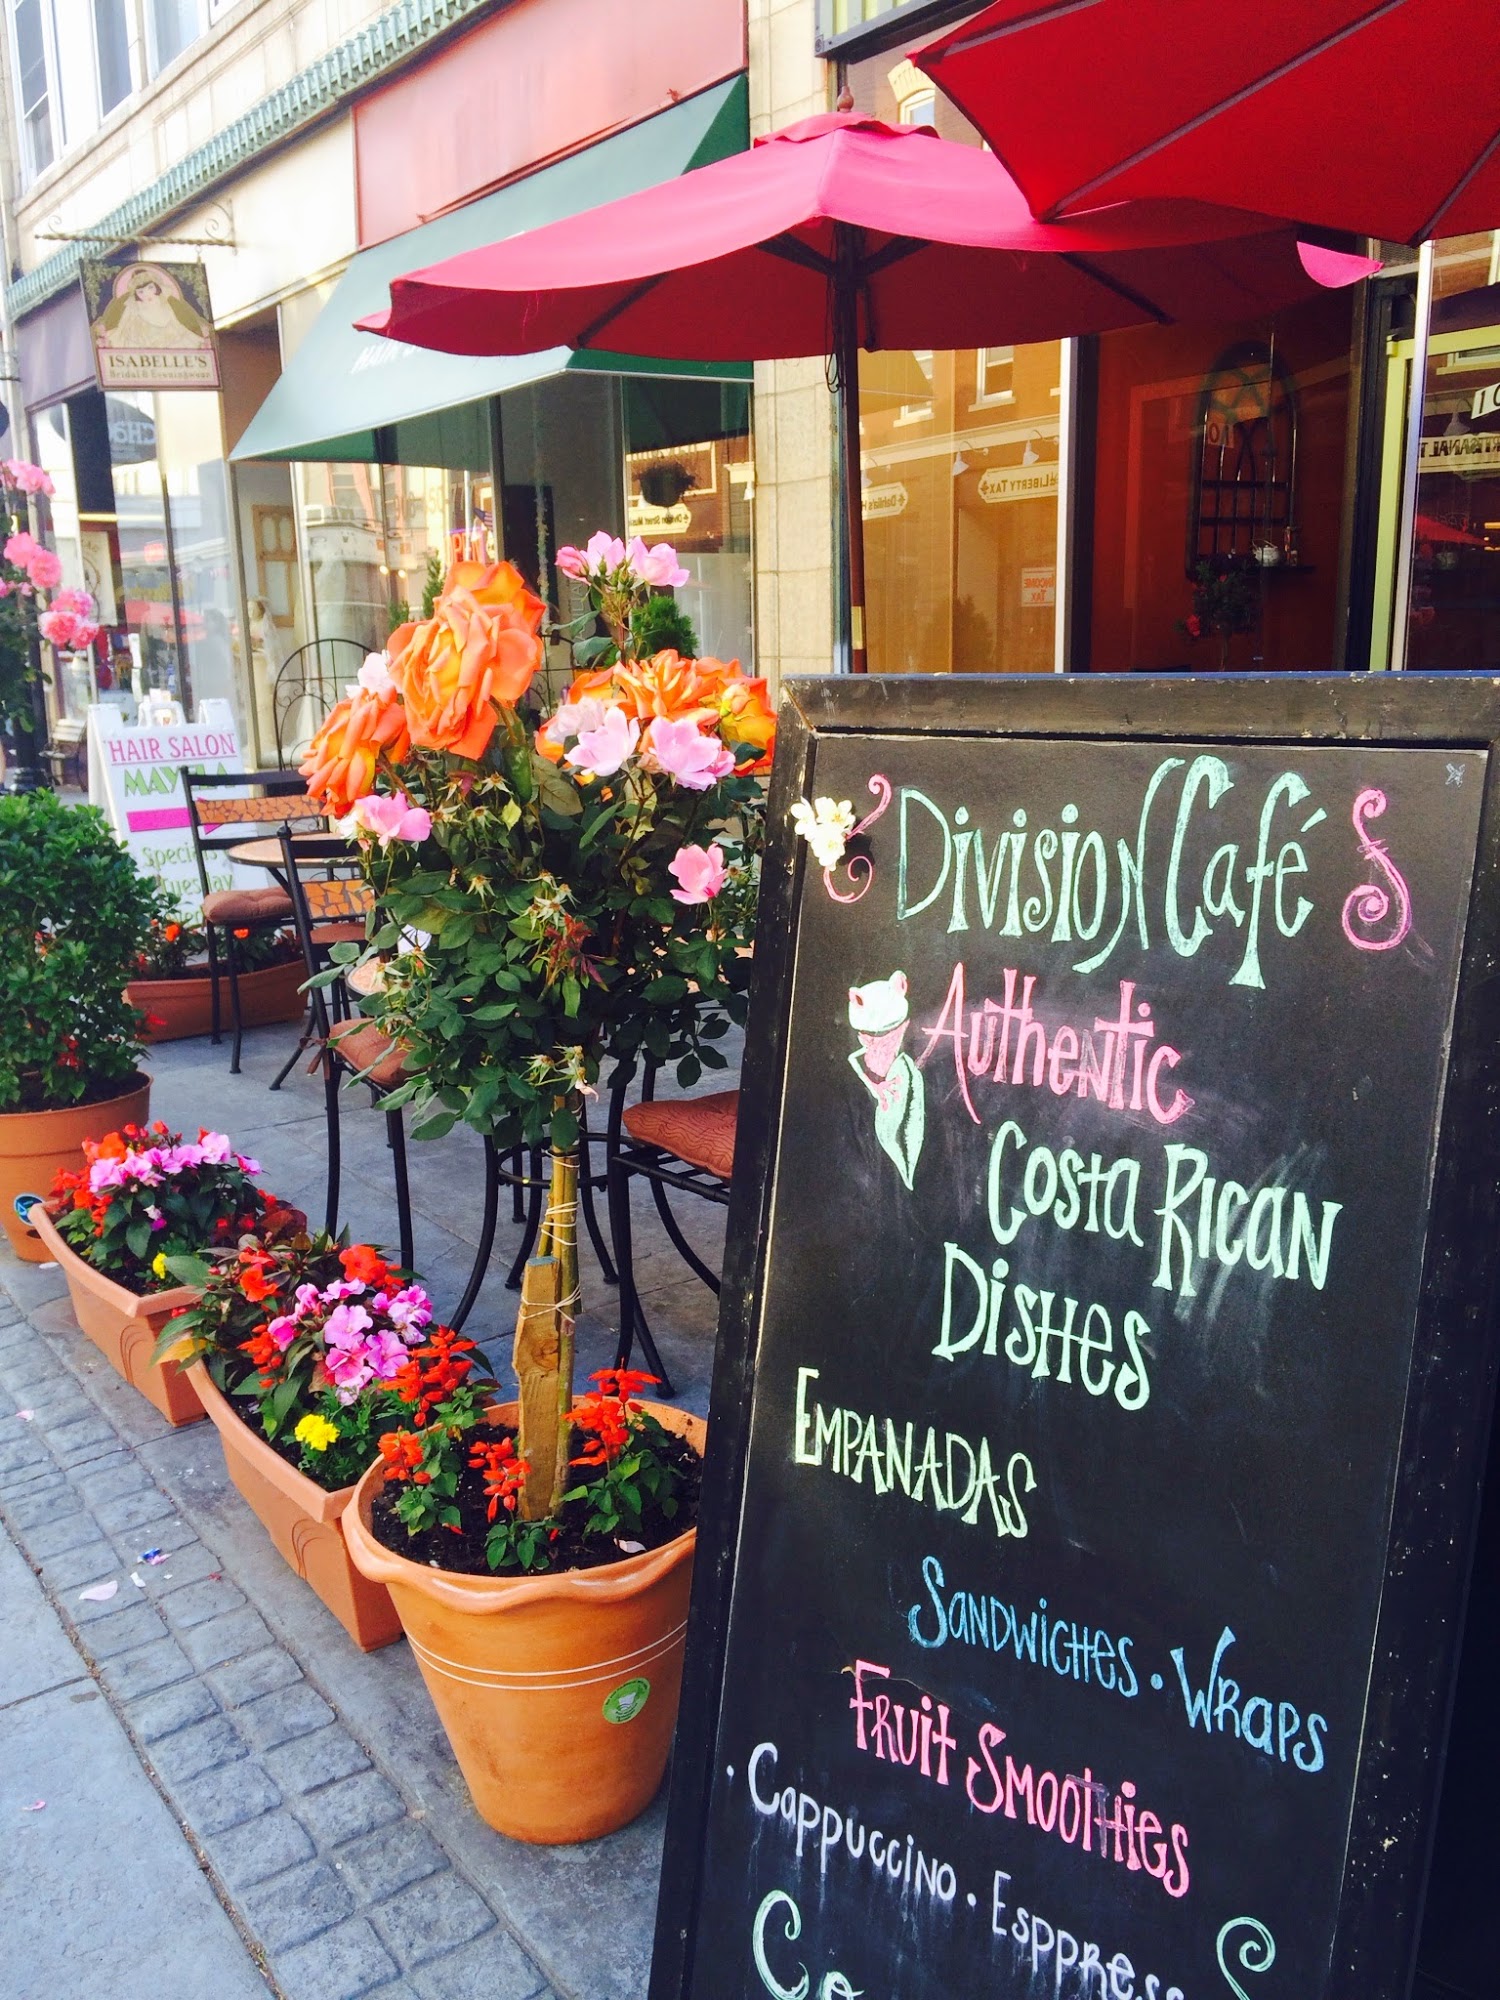 ISABELLE'S
Bridal & Eveningwear
HAIR
HAIR SALON
Specials
Tuesday
LIBERTY TAX
INCOME
TAX
Division Café
Authentic
Costa Rican
Dishes
Empanadas
Sandwiches · Wraps
Fruit Smoothies
· Cappuccino ·